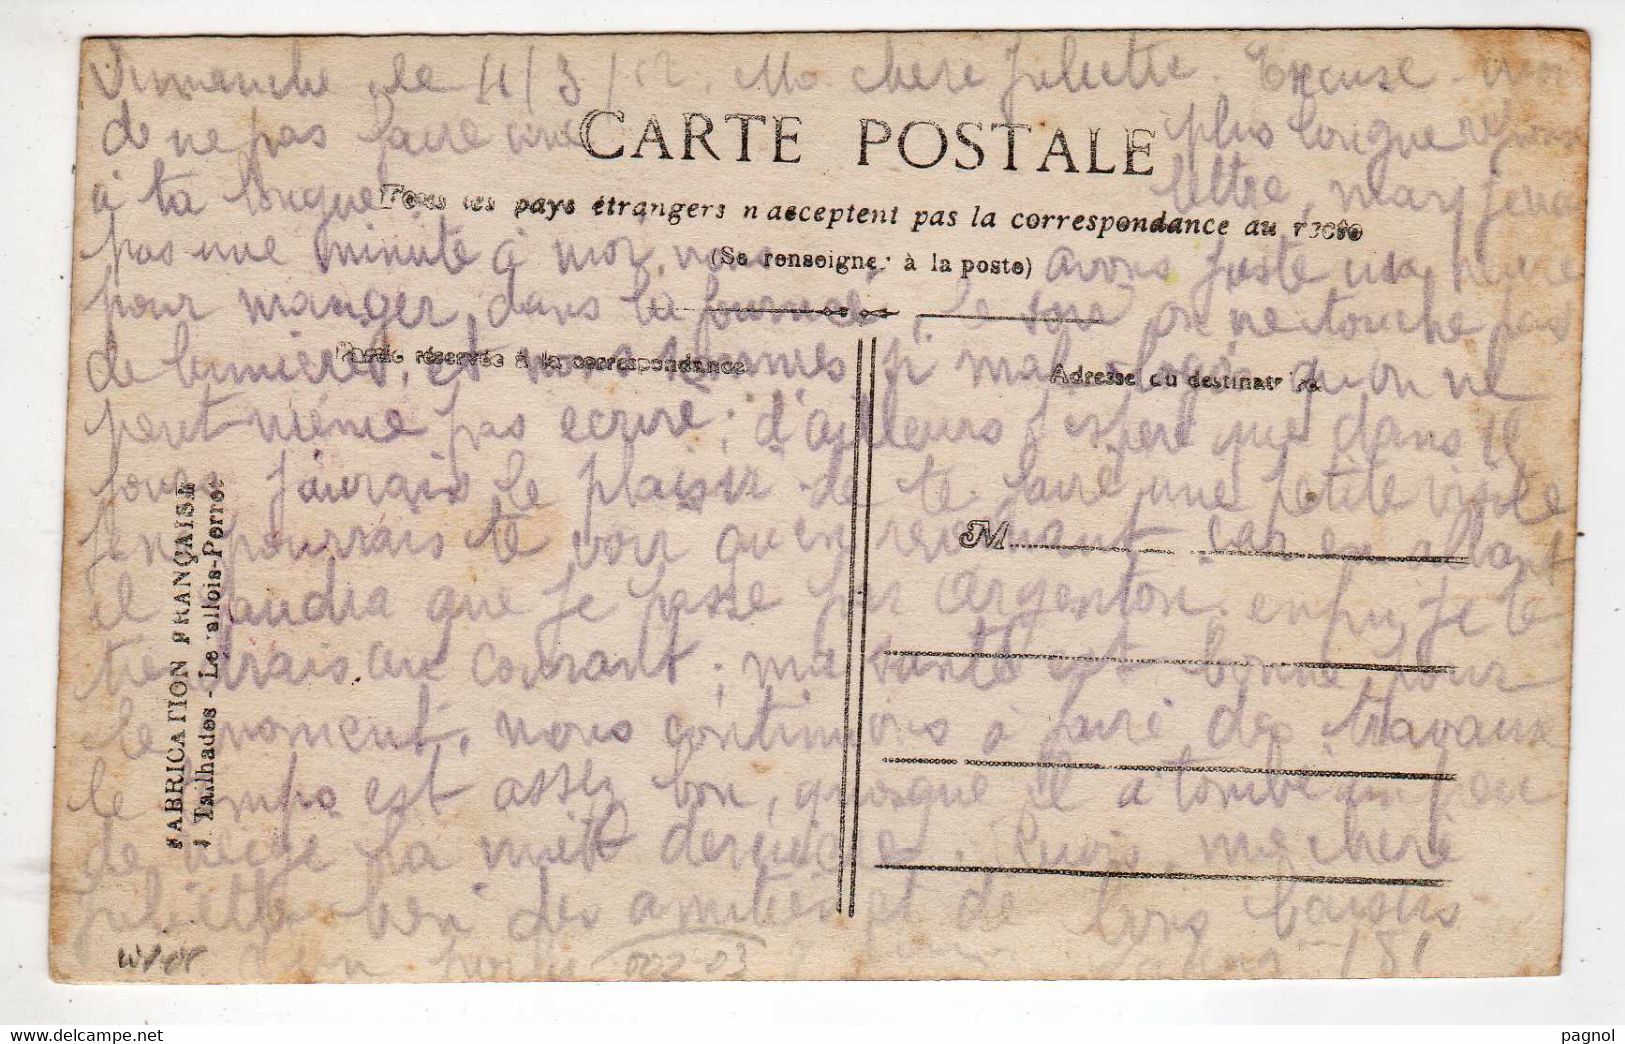 Dimanche le 4/3/ Ma chère Juliette. Excuse-moi
de ne pas faire une plus longue réponse
à ta longue lettre, mais je n'ai
CARTE POSTALE
Tous les pays étrangers n'acceptent pas la correspondance au recto
(Se renseigner à la poste)
pas une minute à moi, nous avons juste une heure
pour manger dans la journée, le soir on ne touche pas
de lumières, et nous sommes si mal logés qu'on ne
Partie réservée à la correspondance
Adresse du destinataire
peut-même pas ecrire; d'ailleurs j'espère que dans
jours j'aurais le plaisir de te faire une petite visite
je ne pourrais te voir qu'en revenant car en allant
M
il faudra que je passe par Argenton. enfin je te
tiendrais au courant; ma santé est bonne pour
le moment, nous continuons à faire des travaux
le temps est assez bon, quoique il a tombé un peu
de neige la nuit dernière. Reçois, ma chère
Juliette des amitiés et de bons baisers
d'un poilu
002-03
FABRICATION FRANÇAISE
J. Tailhades - Levallois-Perret
pagnol
www.delcampe.net